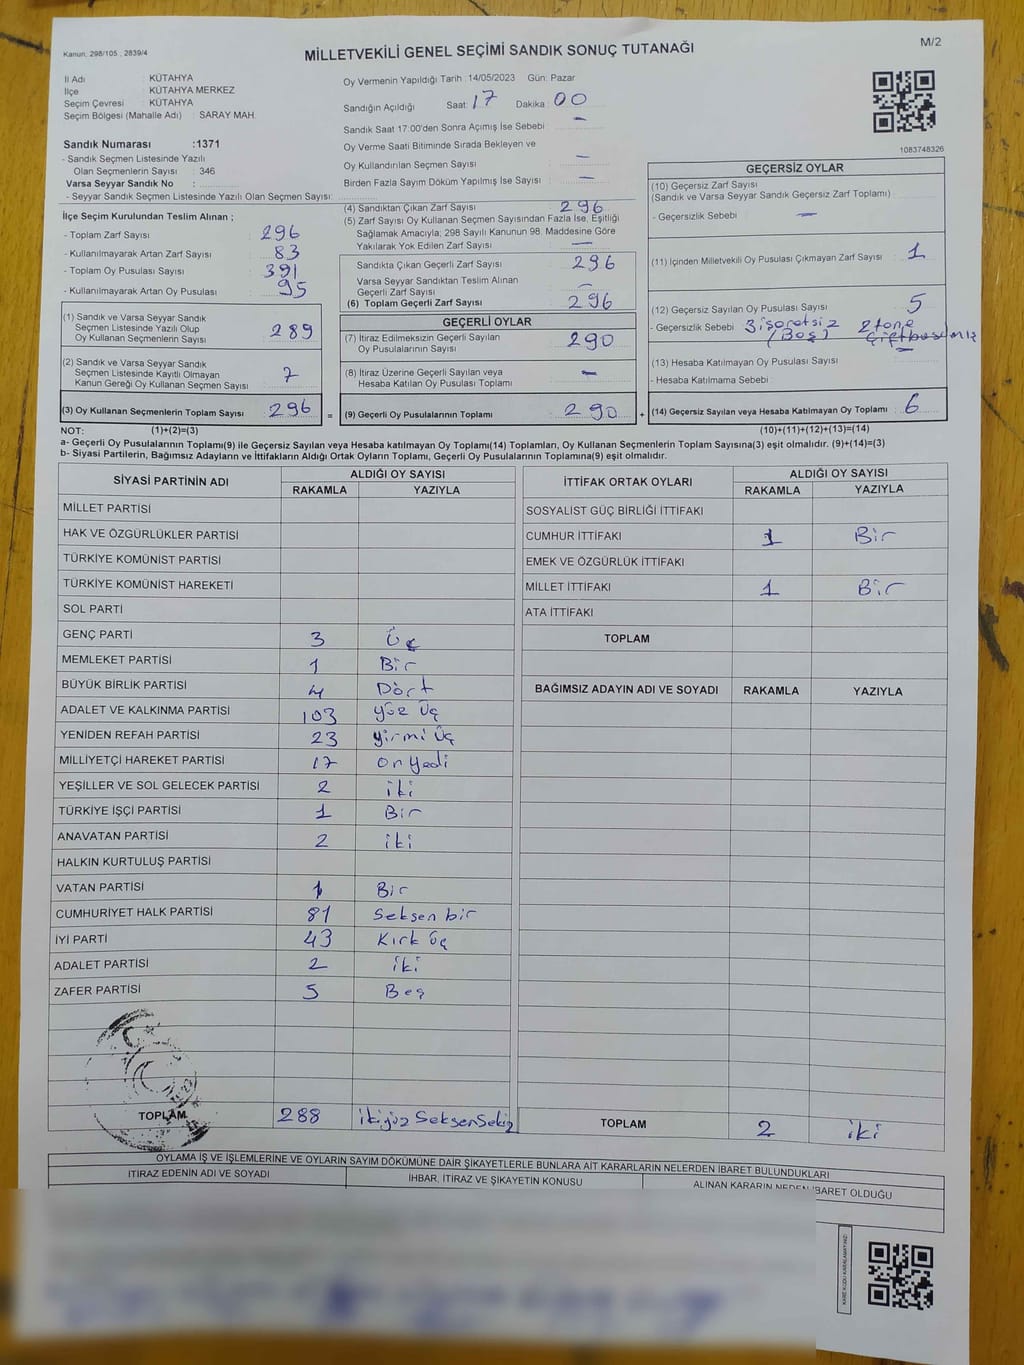 Kanun: 298/105 , 2839/4
MİLLETVEKİLİ GENEL SEÇİMİ SANDIK SONUÇ TUTANAĞI
M/2
İl Adı : KÜTAHYA
İlçe : KÜTAHYA MERKEZ
Seçim Çevresi : KÜTAHYA
Seçim Bölgesi (Mahalle Adı) : SARAY MAH.
Sandık Numarası :1371
- Sandık Seçmen Listesinde Yazılı
Olan Seçmenlerin Sayısı : 346
Varsa Seyyar Sandık No :
- Seyyar Sandık Seçmen Listesinde Yazılı Olan Seçmen Sayısı:
Oy Vermenin Yapıldığı Tarih :14/05/2023 Gün: Pazar
Sandığın Açıldığı Saat: 17 Dakika: 00
Sandık Saat 17:00'den Sonra Açımış İse Sebebi : -
Oy Verme Saati Bitiminde Sırada Bekleyen ve
Oy Kullandırılan Seçmen Sayısı : -
Birden Fazla Sayım Döküm Yapılmış İse Sayısı : -
1083748326
İlçe Seçim Kurulundan Teslim Alınan ;
- Toplam Zarf Sayısı : 296
- Kullanılmayarak Artan Zarf Sayısı : 83
- Toplam Oy Pusulası Sayısı : 391
- Kullanılmayarak Artan Oy Pusulası : 95
(1) Sandık ve Varsa Seyyar Sandık
Seçmen Listesinde Yazılı Olup
Oy Kullanan Seçmenlerin Sayısı : 289
(2) Sandık ve Varsa Seyyar Sandık
Seçmen Listesinde Kayıtlı Olmayan
Kanun Gereği Oy Kullanan Seçmen Sayısı : 7
(3) Oy Kullanan Seçmenlerin Toplam Sayısı : 296 =
(4) Sandıktan Çıkan Zarf Sayısı : 296
(5) Zarf Sayısı Oy Kullanan Seçmen Sayısından Fazla İse, Eşitliği
Sağlamak Amacıyla; 298 Sayılı Kanunun 98. Maddesine Göre
Yakılarak Yok Edilen Zarf Sayısı : -
Sandıkta Çıkan Geçerli Zarf Sayısı : 296
Varsa Seyyar Sandıktan Teslim Alınan
Geçerli Zarf Sayısı : -
(6) Toplam Geçerli Zarf Sayısı : 296
GEÇERLİ OYLAR
(7) İtiraz Edilmeksizin Geçerli Sayılan
Oy Pusulalarının Sayısı : 290
(8) İtiraz Üzerine Geçerli Sayılan veya
Hesaba Katılan Oy Pusulası Toplamı : -
(9) Geçerli Oy Pusulalarının Toplamı : 290 +
GEÇERSİZ OYLAR
(10) Geçersiz Zarf Sayısı
(Sandık ve Varsa Seyyar Sandık Geçersiz Zarf Toplamı) :
- Geçersizlik Sebebi : -
(11) İçinden Milletvekili Oy Pusulası Çıkmayan Zarf Sayısı : 1
(12) Geçersiz Sayılan Oy Pusulası Sayısı : 5
- Geçersizlik Sebebi : 3 işaretsiz 2 tane
(Boş) Çift basılmış
(13) Hesaba Katılmayan Oy Pusulası Sayısı : -
- Hesaba Katılmama Sebebi :
(14) Geçersiz Sayılan veya Hesaba Katılmayan Oy Toplamı : 6
NOT: (1)+(2)=(3) (10)+(11)+(12)+(13)=(14)
a- Geçerli Oy Pusulalarının Toplamı(9) ile Geçersiz Sayılan veya Hesaba katılmayan Oy Toplamı(14) Toplamları, Oy Kullanan Seçmenlerin Toplam Sayısına(3) eşit olmalıdır. (9)+(14)=(3)
b- Siyasi Partilerin, Bağımsız Adayların ve İttifakların Aldığı Ortak Oyların Toplamı, Geçerli Oy Pusulalarının Toplamına(9) eşit olmalıdır.
SİYASİ PARTİNİN ADI ALDIĞI OY SAYISI
RAKAMLA YAZIYLA
MİLLET PARTİSİ
HAK VE ÖZGÜRLÜKLER PARTİSİ
TÜRKİYE KOMÜNİST PARTİSİ
TÜRKİYE KOMÜNİST HAREKETİ
SOL PARTİ
GENÇ PARTİ 3 Üç
MEMLEKET PARTİSİ 1 Bir
BÜYÜK BİRLİK PARTİSİ 4 Dört
ADALET VE KALKINMA PARTİSİ 103 Yüz Üç
YENİDEN REFAH PARTİSİ 23 Yirmi Üç
MİLLİYETÇİ HAREKET PARTİSİ 17 On Yedi
YEŞİLLER VE SOL GELECEK PARTİSİ 2 iki
TÜRKİYE İŞÇİ PARTİSİ 1 Bir
ANAVATAN PARTİSİ 2 iki
HALKIN KURTULUŞ PARTİSİ
VATAN PARTİSİ 1 Bir
CUMHURİYET HALK PARTİSİ 81 Seksen bir
İYİ PARTİ 43 Kırk üç
ADALET PARTİSİ 2 iki
ZAFER PARTİSİ 5 Beş
TOPLAM 288 ikiyüz SeksenSekiz
İTTİFAK ORTAK OYLARI ALDIĞI OY SAYISI
RAKAMLA YAZIYLA
SOSYALİST GÜÇ BİRLİĞİ İTTİFAKI
CUMHUR İTTİFAKI 1 Bir
EMEK VE ÖZGÜRLÜK İTTİFAKI
MİLLET İTTİFAKI 1 Bir
ATA İTTİFAKI
TOPLAM
BAĞIMSIZ ADAYIN ADI VE SOYADI RAKAMLA YAZIYLA
TOPLAM 2 iki
OYLAMA İŞ VE İŞLEMLERİNE VE OYLARIN SAYIM DÖKÜMÜNE DAİR ŞİKAYETLERLE BUNLARA AİT KARARLARIN NELERDEN İBARET BULUNDUKLARI
İTİRAZ EDENİN ADI VE SOYADI İHBAR, İTİRAZ VE ŞİKAYETİN KONUSU ALINAN KARARIN NEDEN İBARET OLDUĞU